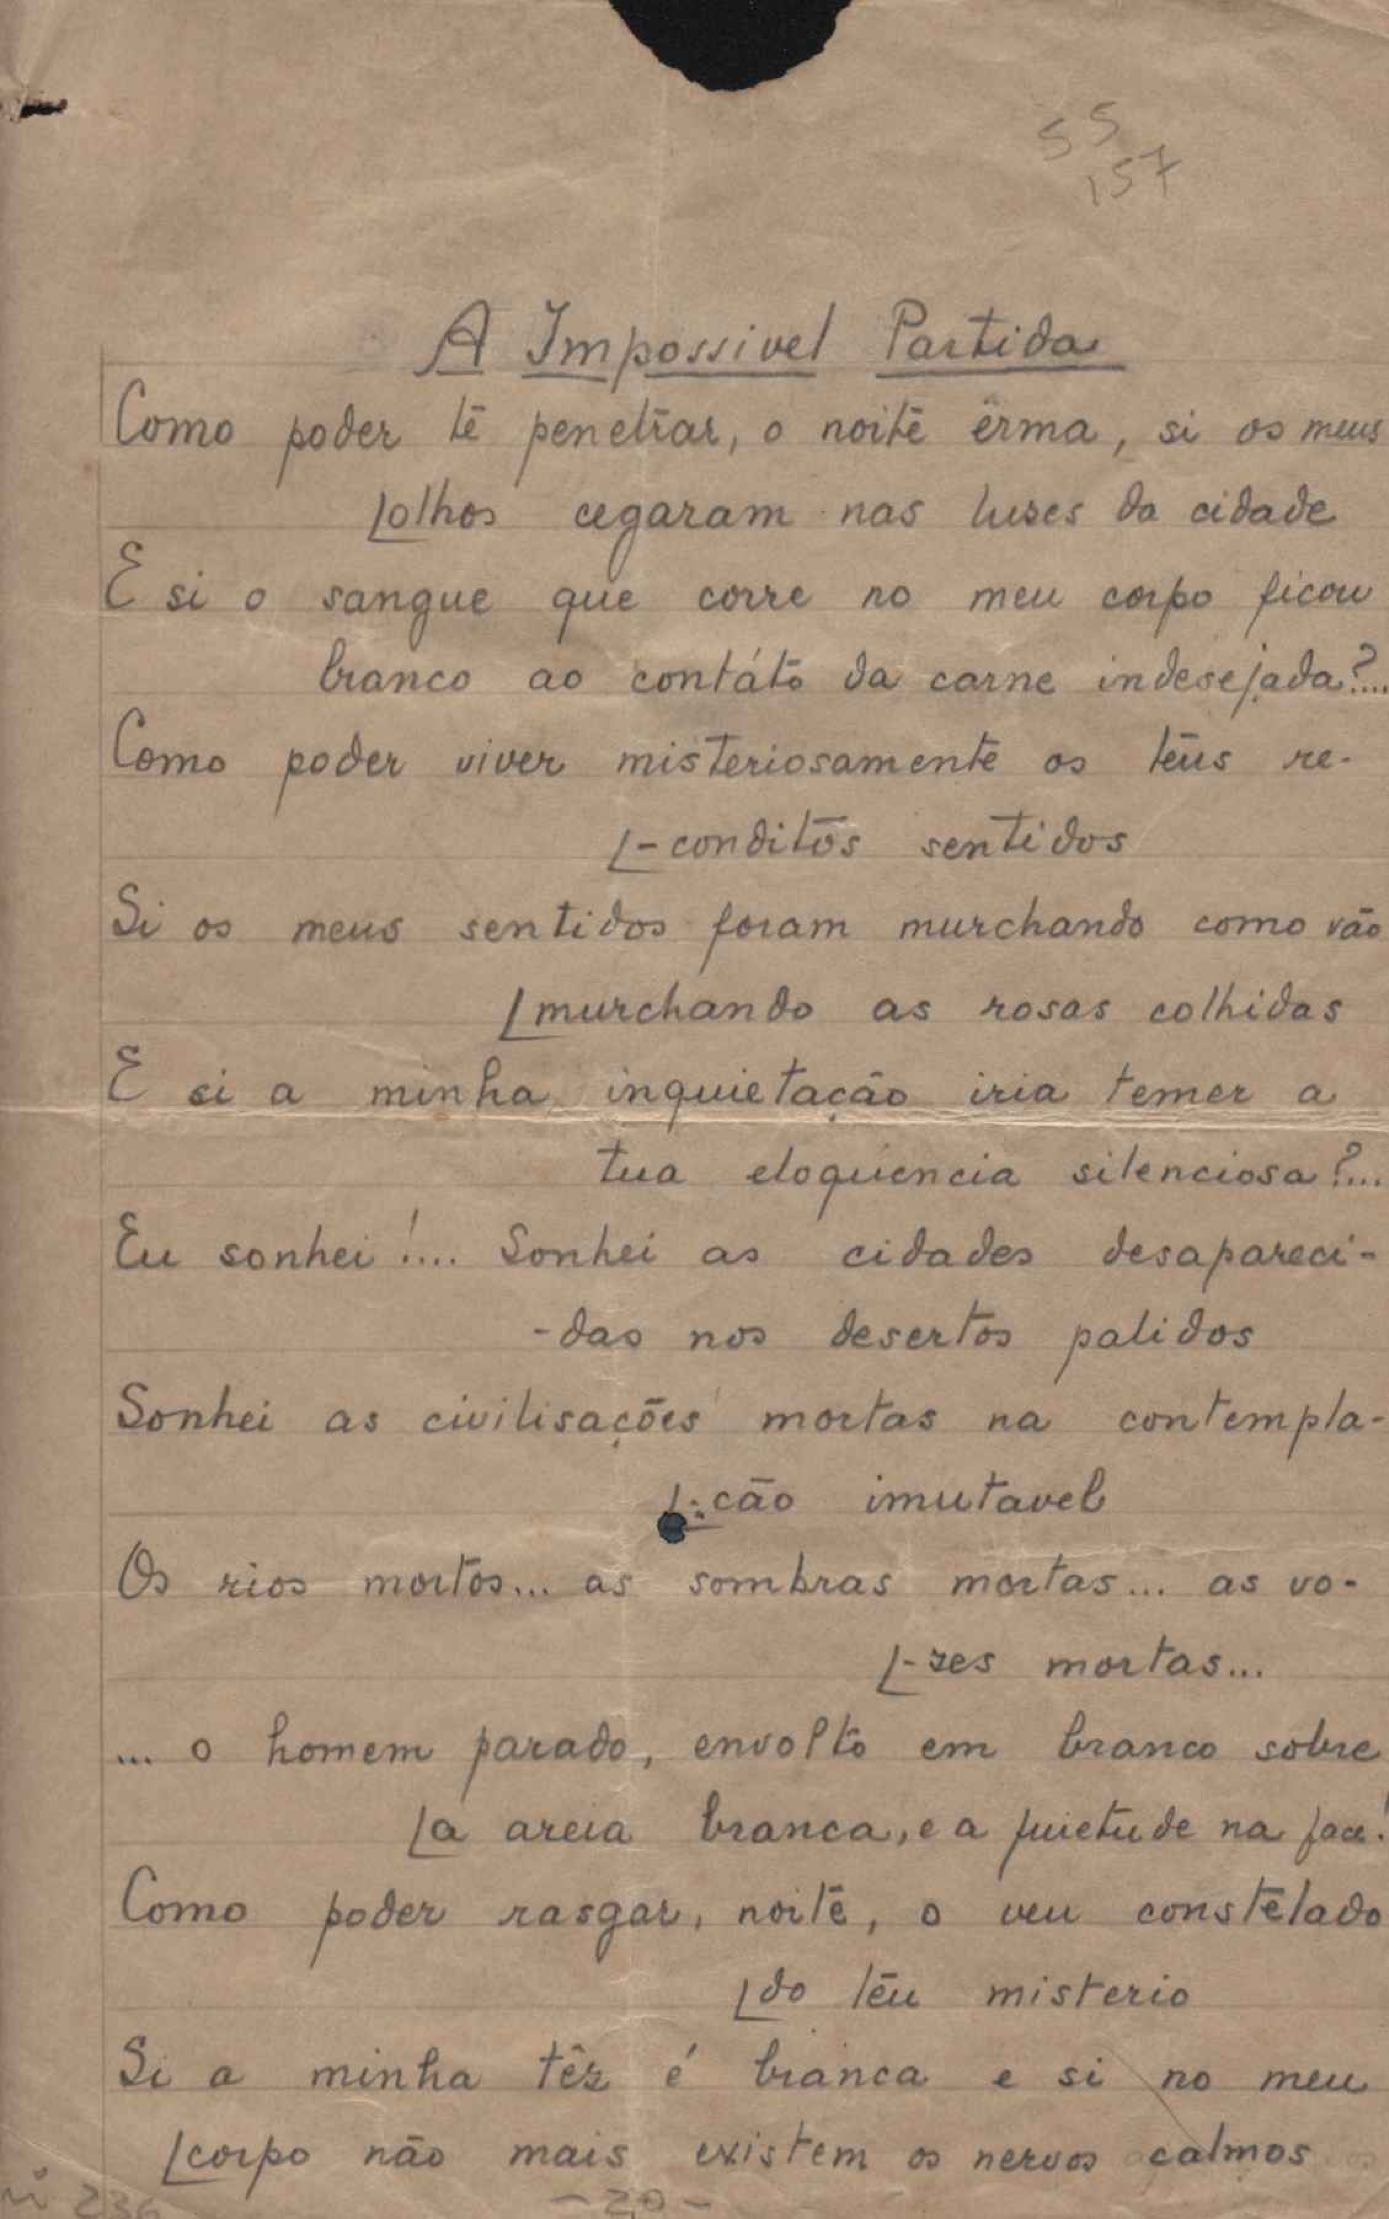 55
157
A Impossivel Partida
Como poder te penetrar, o noite êrma, si os meus
[olhos cegaram nas luses da cidade
E si o sangue que corre no meu corpo ficou
branco ao contáto da carne indesejada?...
Como poder viver misteriosamente os teus re-
[-conditos sentidos
Si os meus sentidos foram murchando como vão
[murchando as rosas colhidas
E si a minha inquietação iria temer a
tua eloquencia silenciosa?...
Eu sonhei!.... Sonhei as cidades desapareci-
-das nos desertos palidos
Sonhei as civilisações mortas na contempla-
[-cão imutavel
Os rios mortos... as sombras mortas... as vo-
[-zes mortas...
... o homem parado, envolto em branco sobre
[a areia branca, e a quietude na face!
Como poder rasgar, noite, o veu constelado
[do teu misterio
Si a minha têz é branca e si no meu
[corpo não mais existem os nervos calmos
236
-20-